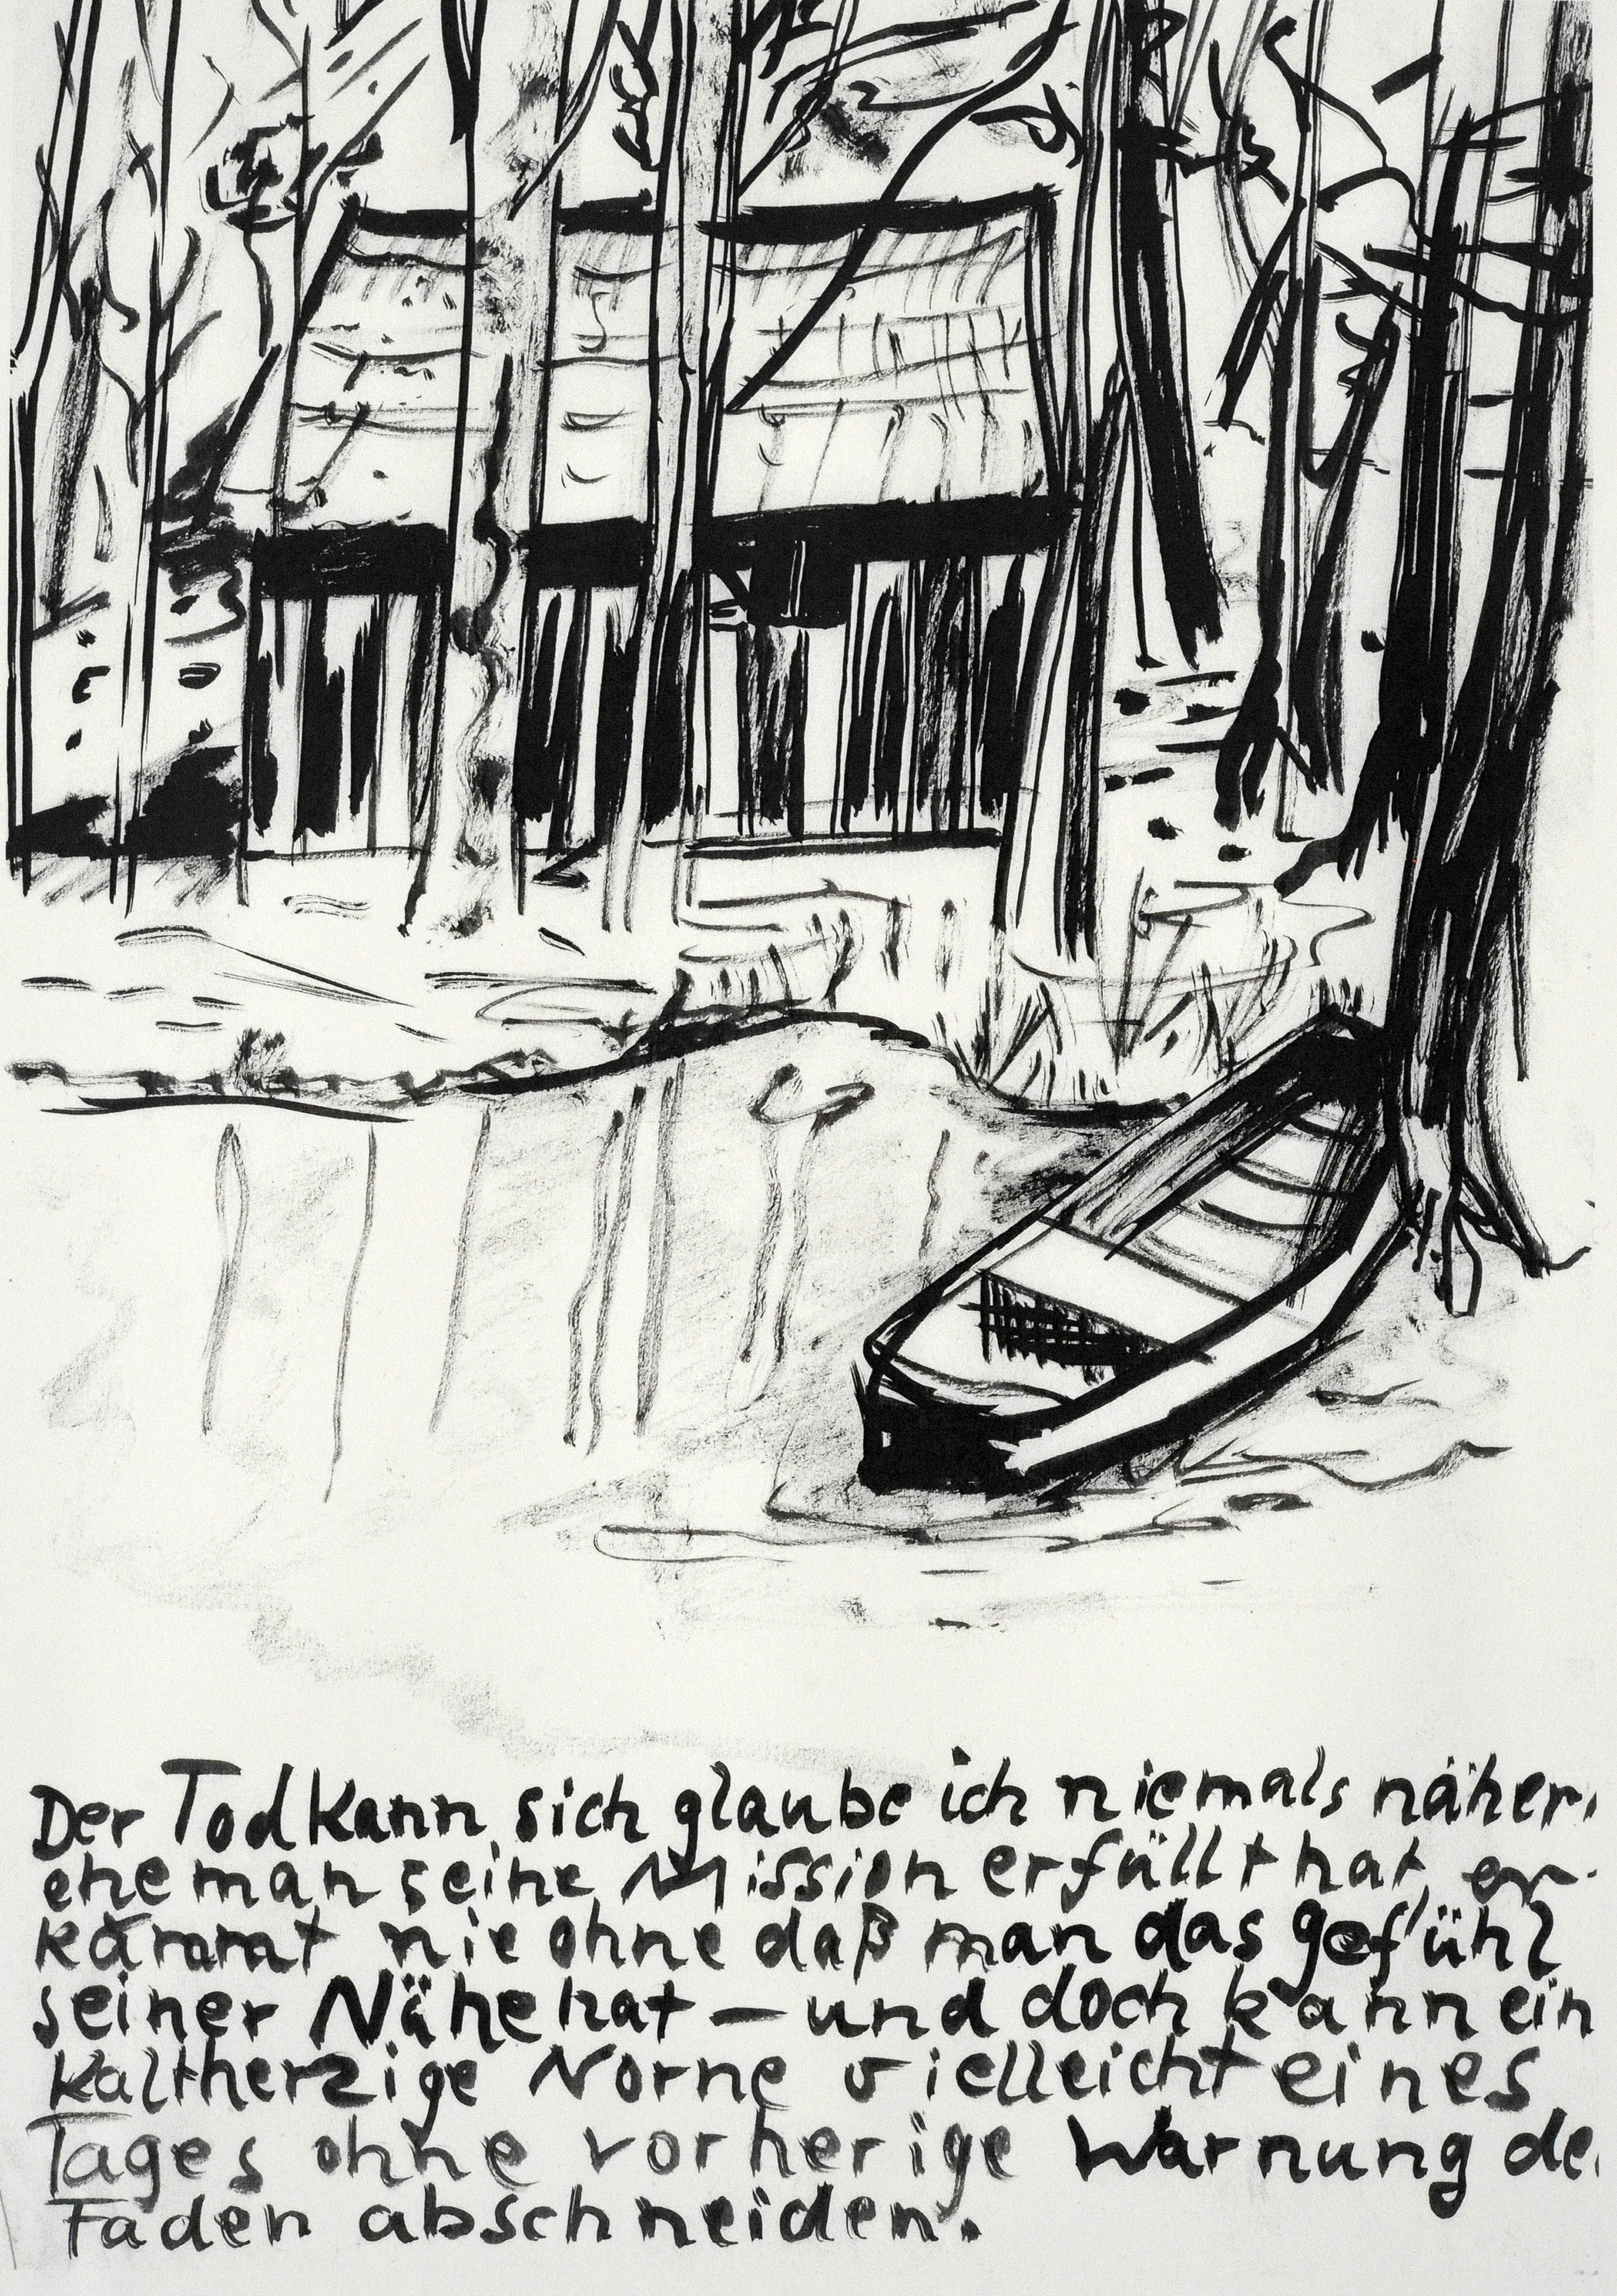 Der Tod kann sich glaube ich niemals näher
ehe man seine Mission erfüllt hat er
kommt nie ohne daß man das gefühl
seiner Nähe hat – und doch kann ein
kaltherzige Norne vielleicht eines
Tages ohne vorherige Warnung de
Faden abschneiden.